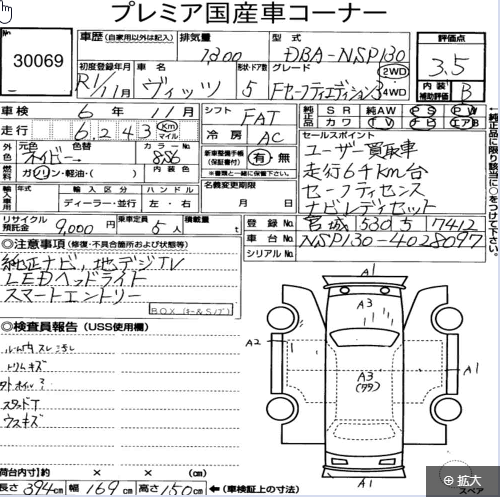 プレミア国産車コーナー
No
30069
車歴 (自家用以外は記入)
排気量
1,300
型式
DBA-NSP130
評価点
3.5
初度登録年月
R1/11月
車名
ヴィッツ
形状・ドア数
5
グレード
FセーフティエディションⅢ
2WD
4WD
内装補助評価
B
車検 6年11月
シフト
FAT
純正品 SR 純AW PS PW
カワ TV ナビ エアB
走行 6,243 km マイル
冷房
AC
セールスポイント
ユーザー買取車
走行64km台
セーフティセンス
ナビレディセット
外色 元色 色替
ネイビー
カラーNo.
8S6
内装色
燃料 ガソリン・軽油・( )
新車整備手帳 (保証書付)
有・無
※書類と一緒に保管して下さい。
名義変更期限
月 日
輸入車用 年式 輸入区分 ハンドル
ディーラー・並行 左・右
純正品に限り該当に○をつけて下さい。
リサイクル預託金 9,000円
乗車定員 5人
積載量 t
登録No. 宮城 530 5 7412
車台No. NSP130-4028097
シリアルNo.
◎注意事項 (修復・不具合箇所および状態等)
純正ナビ,地デジTV
LEDヘッドライト
スマートエントリー
BOX(キー&Sノブ)
◎検査員報告 (USS使用欄)
ルーム内スレ汚レ
トリムキズ
スタッドT
ウスキズ
A1
A3
A2
A3
(ワワ)
A1
A1
荷台内寸(約 × × )
長さ 394cm 幅 169cm 高さ 150cm ←(車検証上の寸法)
スペア
拡大